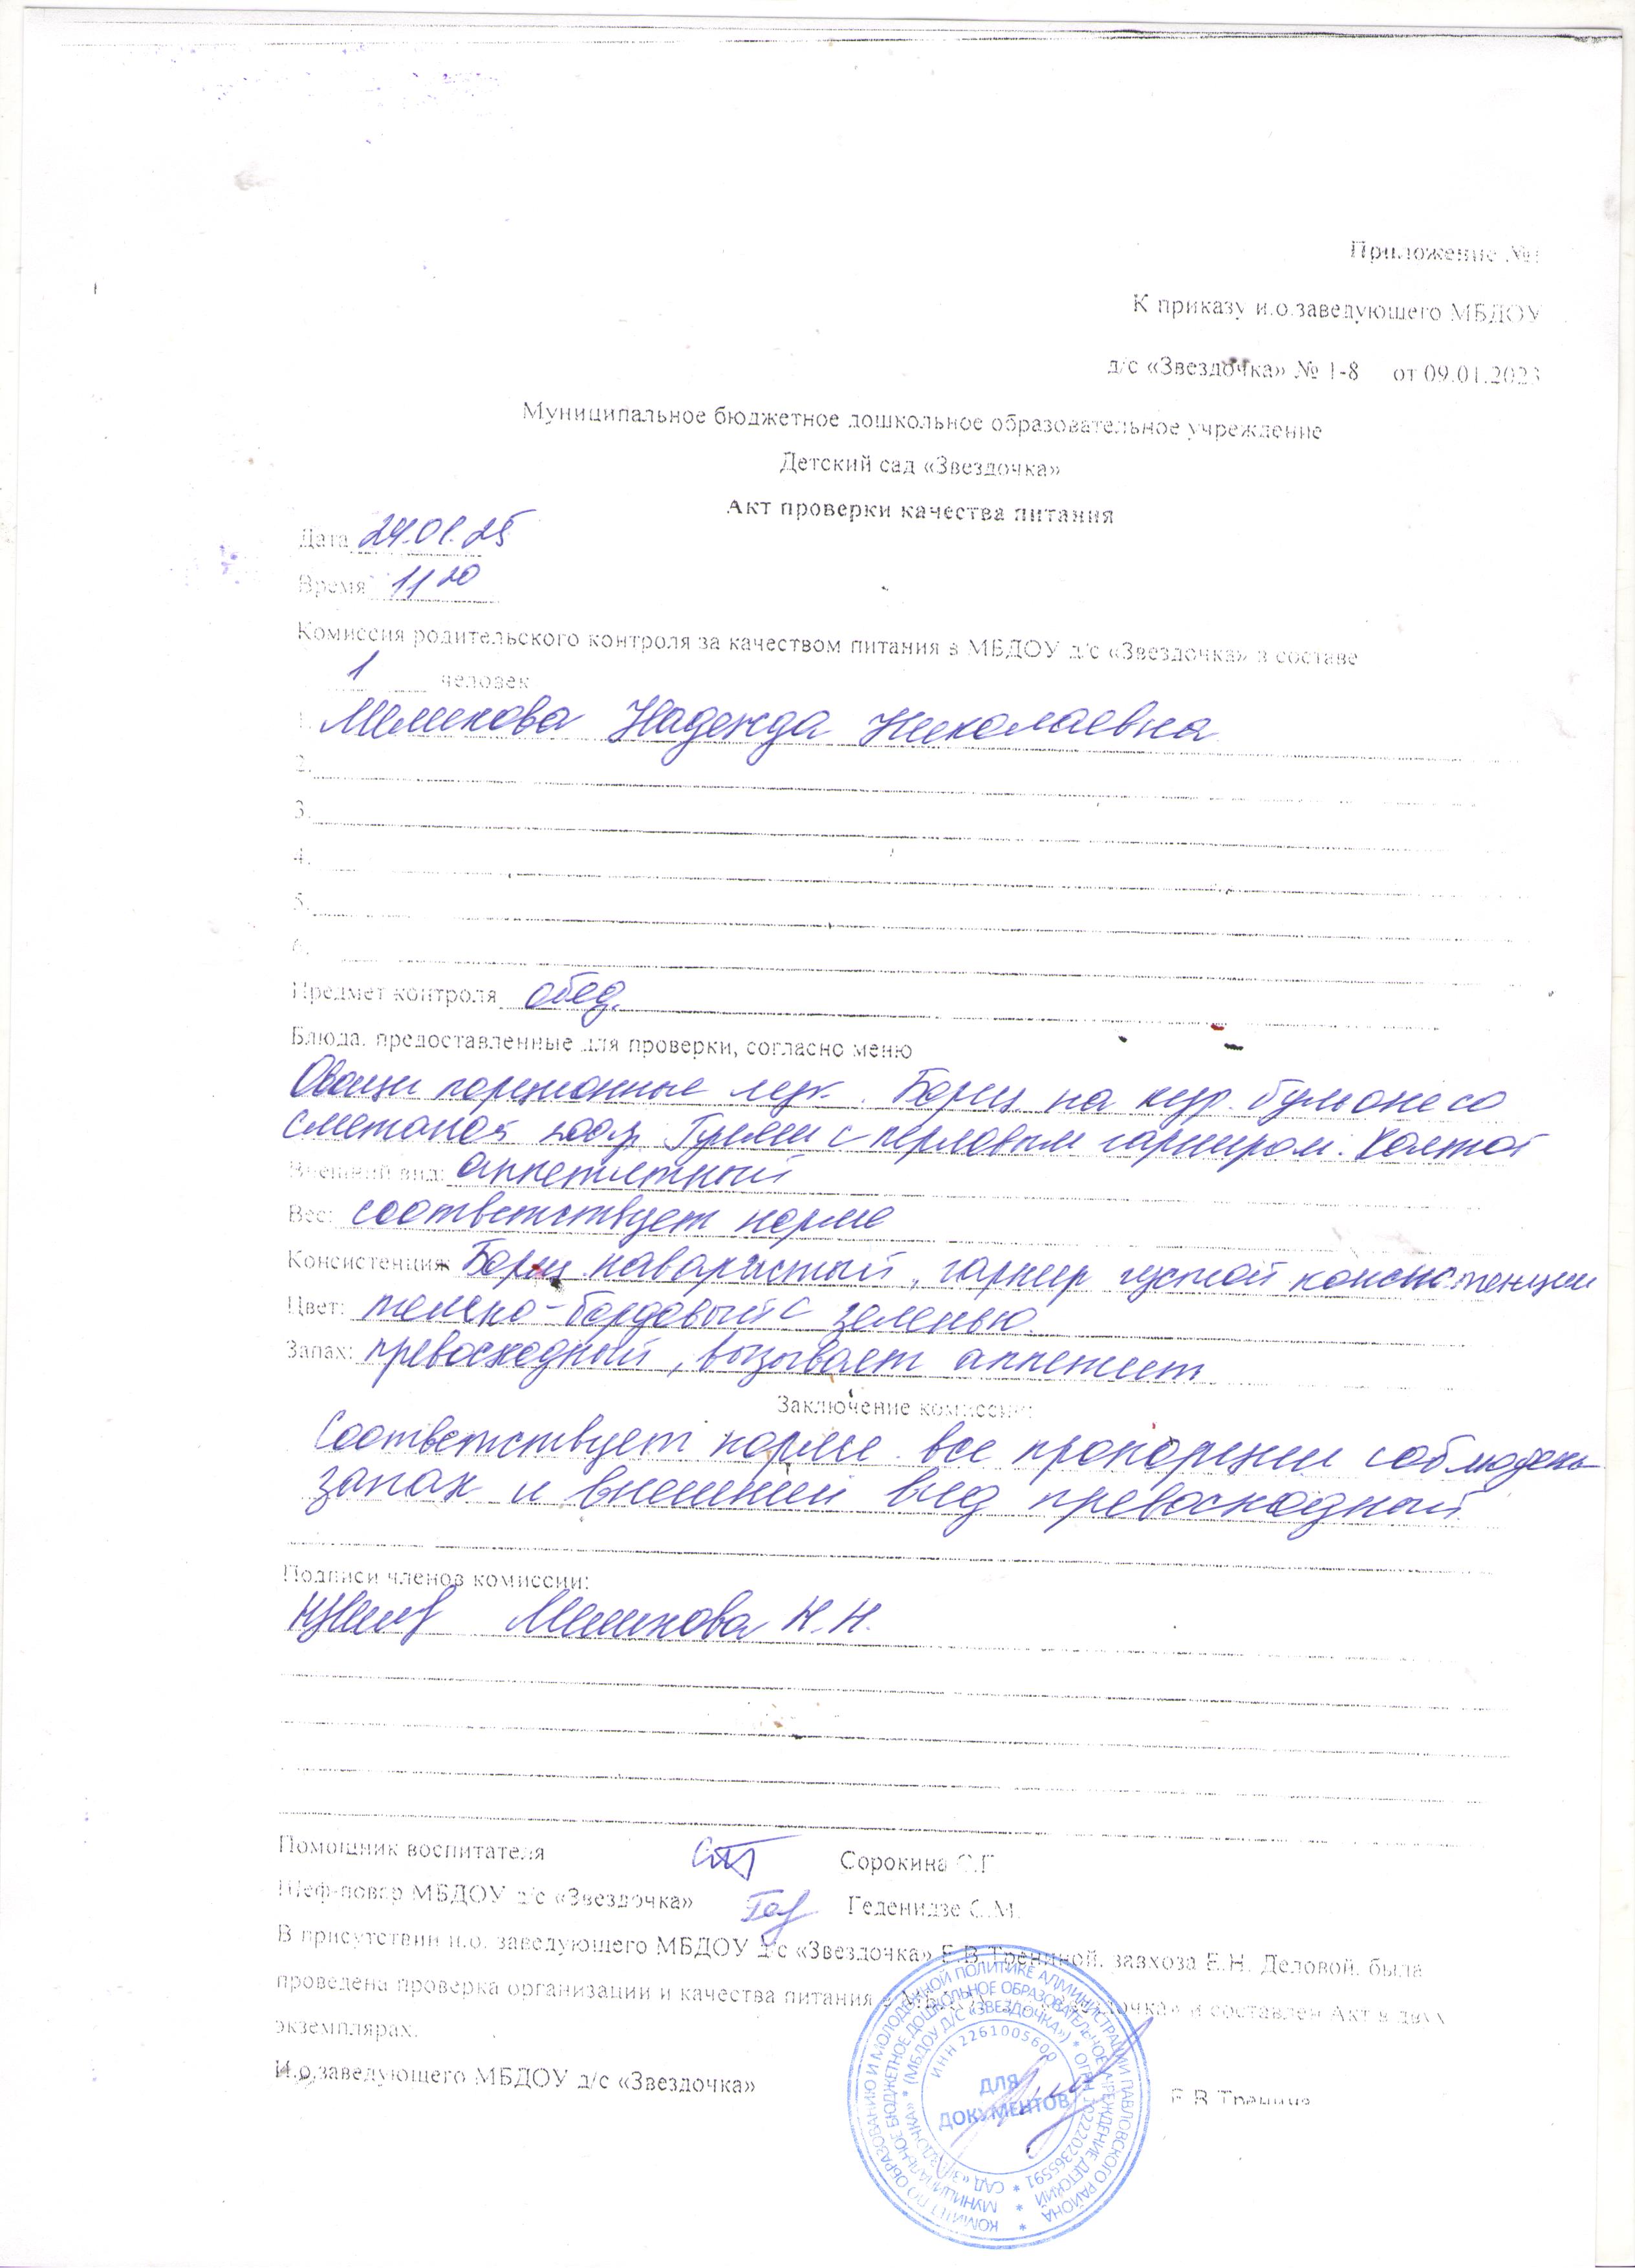 Приложение №1
К приказу и.о.заведующего МБДОУ
д/с «Звездочка» № 1-8 от 09.01.2023
Муниципальное бюджетное дошкольное образовательное учреждение
Детский сад «Звездочка»
Акт проверки качества питания
Дата 24.01.25
Время 11 20
Комиссия родительского контроля за качеством питания в МБДОУ д/с «Звездочка» в составе
1 человек
1. Мешкова Надежда Николаевна
2.
3.
4.
5.
6.
Предмет контроля обед.
Блюда, предоставленные для проверки, согласно меню
Овощи порционные . Борщ на кур. бульоне со
сметаной с перловым гарниром.
Внешний вид: аппетитный
Вес: соответствует норме
Консистенция: Борщ наваристый, гарнир густой консистенции
Цвет: -бордовый с зеленью
Запах: превосходный, вызывает аппетит
Заключение комиссии:
Соответствует норме. все пропорции соблюдены
запах и внешний вид превосходный.
Подписи членов комиссии:
Мешкова Н.Н.
Помощник воспитателя Сорокина С.Г
Шеф-повар МБДОУ д/с «Звездочка» Геденидзе С.М.
В присутствии и.о. заведующего МБДОУ д/с «Звездочка» Е.В.Трениной, завхоза Е.Н. Деловой, была
проведена проверка организации и качества питания в МБДОУ д/с «Звездочка» и составлен Акт в двух
экземплярах.
И.о.заведующего МБДОУ д/с «Звездочка» Е.В.Тренина
КОМИТЕТ ПО ОБРАЗОВАНИЮ И МОЛОДЕЖНОЙ ПОЛИТИКЕ АДМИНИСТРАЦИИ ПАВЛОВСКОГО РАЙОНА *
МУНИЦИПАЛЬНОЕ БЮДЖЕТНОЕ ДОШКОЛЬНОЕ ОБРАЗОВАТЕЛЬНОЕ УЧРЕЖДЕНИЕ ДЕТСКИЙ *
САД «ЗВЕЗДОЧКА» * (МБДОУ Д/С «ЗВЕЗДОЧКА») * ОГРН 1022202365591 *
ИНН 2261005600
ДЛЯ
ДОКУМЕНТОВ